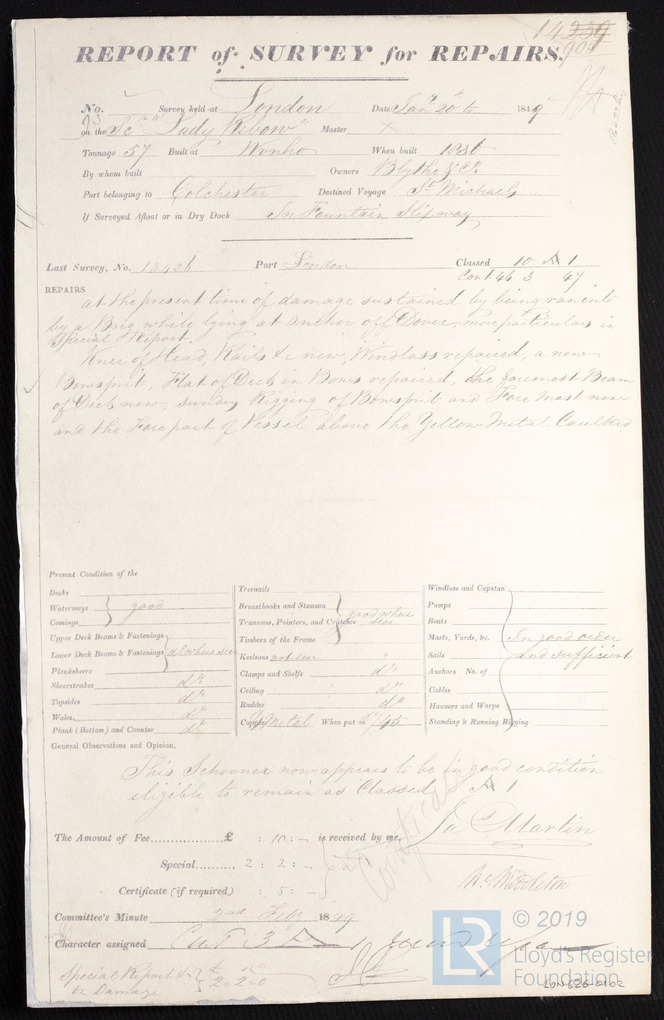 14239
REPORT of SURVEY for REPAIRS.
No. 93 Survey held at London Date Jany 20th 1849
on the Scr "Lady Rebow" Master
Tonnage 57 Built at Wvnho When built 1836
By whom built Owners Blythe & Co
Port belonging to Colchester Destined Voyage St Michaels
If Surveyed Afloat or in Dry Dock In Fountain Slipway
Last Survey, No. 13426 Port London Classed 10 A 1
Cont 46 3 47
REPAIRS
at the present time of damage sustained by being ran into
by a Brig while lying at anchor off Dover, more particulars in
Special Report.
Knee of Head, Rails &c new, Windlass repaired, a new
Bowsprit, Flat of Deck in Bows repaired, the foremost Beam
of Deck new, sundry Rigging of Bowsprit and Fore Mast new
and the Fore part of Vessel above the Yellow Metal Caulked
Present Condition of the
Decks
Waterways good
Comings
Upper Deck Beams & Fastenings
Lower Deck Beams & Fastenings as where seen
Planksheers
Sheerstrakes do
Topsides do
Wales do
Plank (Bottom) and Counter do
Treenails
Breasthooks and Stemson
Transoms, Pointers, and Crutches good where seen
Timbers of the Frame
Keelsons not seen
Clamps and Shelfs do
Ceiling do
Rudder do
Copper Y Metal When put on 45
Windlass and Capstan
Pumps
Boats
Masts, Yards, &c. In good order
Sails and sufficient
Anchors No. of
Cables
Hawsers and Warps
Standing & Running Rigging
General Observations and Opinion,
This Schooner now appears to be in good condition
eligible to remain as Classed A 1
The Amount of Fee £ : 10 : – is received by me,
Jas Martin
Special 2 : 2 : –
Certificate
Certificate (if required) : 5 : –
W. Middleton
Committee's Minute 2nd Feby 1849
Character assigned Cont 3 A 1
Special Report &c
or Damage 2 2 0
LR © 2019
Lloyd's Register
Foundation
LON626-0102